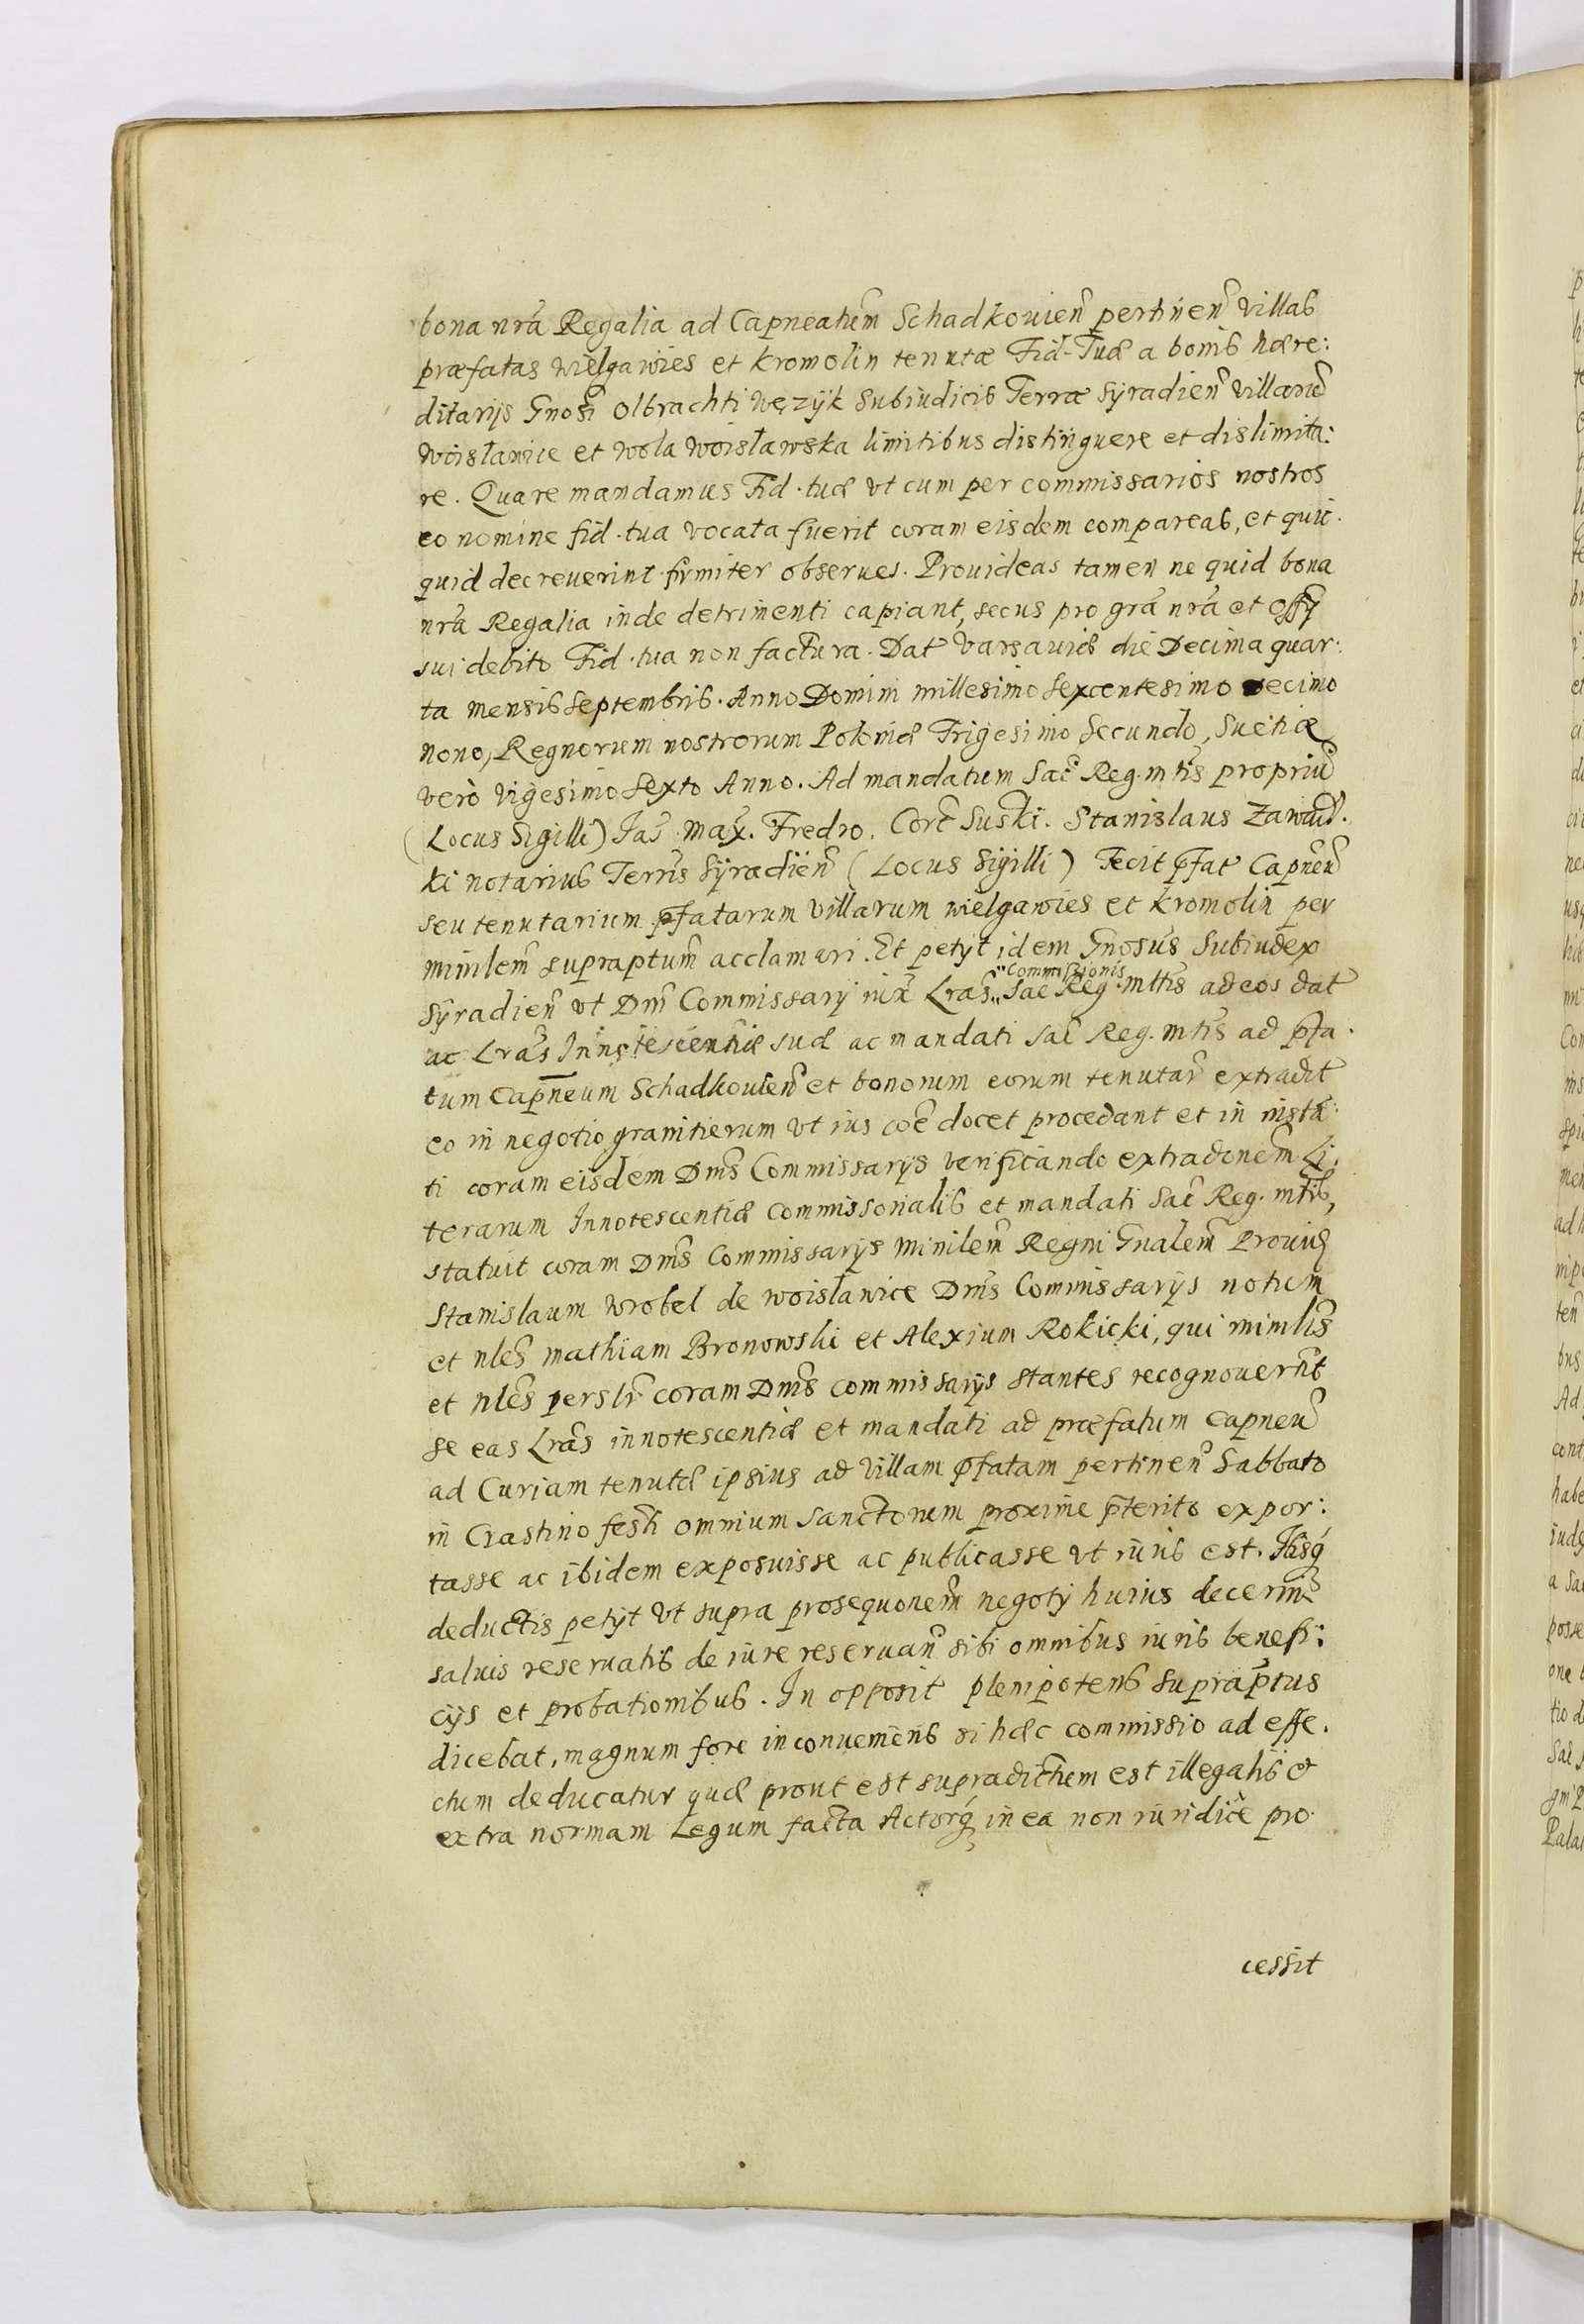 bona nrã Regalia ad Capneatum̃ Schadkouien̄ pertinen̄ villas
præfatas wielgawies et kromolin tenutæ Fid-Tuæ a bonis hære:
ditarijs Gnosi Olbrachti Wężÿk Subiudicis Terræ Syradien̄ villarū
Woisławice et Wola Woisławska limitibus distinguere et dislimita:
re. Quare mandamus Fid. tuæ vt cum per commissarios nostros
eo nomine fid. tua vocata fuerit coram eisdem compareas, et quic.
quid decreuerint firmiter obserues. Prouideas tamen ne quid bona
nrã Regalia inde detrimenti capiant, secus pro grã nrã et offÿ
sui debito Fid. tua non factura. Dat Varsauiæ die Decima quar:
ta mensis Septembris. Anno Domini millesimo Sexcentesimo Decimo
nono, Regnorum nostrorum Poloniæ Trigesimo Secundo, Suetiæ
verò Vigesimo Sexto Anno. Ad mandatum Sac̃ Reg. mtis propriū
(Locus Sigilli) Jac̃. Max. Fredro. Corc̃ Suski. Stanislaus Zawad.
ki notarius Terris̃ Sÿradien̄ (Locus Sigilli) Fecit p̄fat Capneū
seu tenutarium p̄fatarum villarum wielgawies et kromolin per
minilem̃ supraptum̃ acclamari. Et petÿt idem Gnosus Subiudex
Sÿradien̄ vt Dm̃i Commissarÿ iux̃ Lrãs „ Sac̃ Reg. mttis ad eos dat
„Commissionis
ac Lrãs Innotescentiæ suæ ac mandati sac̃ Reg. mtis ad p̄fa.
tum Capneum Schadkouien̄ et bonorum eorum tenutar̃ extradit
eo in negotio granitierum vt ius coẽ docet procedant et in instã.
ti coram eisdem Dm̃s Commissarÿs verificando extradonem̃ Li.
terarum Innotescentiæ commissorialis et mandati Sac̃ Reg. mtis,
statuit coram Dm̃s Commissarÿs Minilem̃ Regni Gnalem̃ Prouid
Stanislaum Wrobel de woisławice Dm̃s Commissarÿs notum
et nles̃ mathiam Bronowski et Alexium Rokicki, qui minilis̃
et nles̃ perslr̃ coram Dm̃s commissarÿs stantes recognouernt̃
se eas Lrãs innotescentiæ et mandati ad præfatum Capneū
ad Curiam tenutæ ipsius ad villam p̄fatam pertinen̄ Sabbato
in Crastino festi omnium Sanctorum proxime p̄terito expor:
tasse ac ibidem exposuisse ac publicasse vt iuris est. Hisq́
deductis petÿt vt supra prosequonem̃ negotÿ huius decerni
saluis reseruatis de iure reseruan̄ sibi omnibus iuris benefi:
cÿs et probationibus. In opposit plenipotens Supraptus
dicebat, magnum fore inconueniens si hæc commissio ad effe.
ctum deducatur quæ prout est supradictum est illegalis et
extra normam Legum facta Actorq́ in ea non iuridicè pro.
cessit